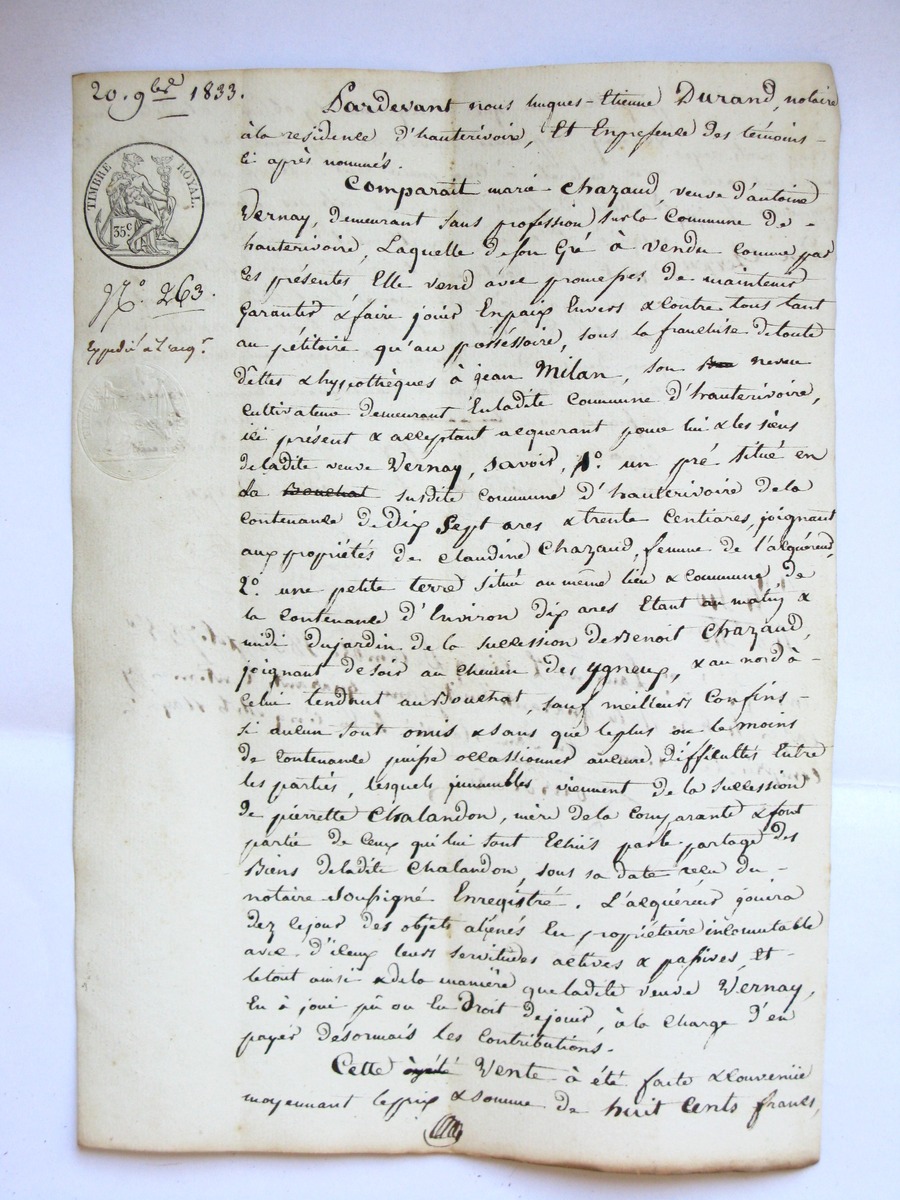 20. 9bre 1833.
TIMBRE ROYAL.
35 c
N.o 263.
Expedié a l'acqr.
Pardevant nous hugues-Etienne Durand, notaire
à la residence d'hauterivoire, Et En presence des témoins
ci après nommés.
Comparait marie Chazaud, veuve d'antoine
Vernay, demeurant sans profession sur la Commune de
hauterivoire, Laquelle de son Gré à vendu comme par
Ces présentes Elle vend avec promesses de maintenir
Garantir & faire jouir En paix Envers & contre tous tant
au pétitoire qu'au possessoire, sous la franchise de toute
dettes & hypothèques à jean Milan, son neveu
cultivateur demeurant En ladite commune d'hauterivoire,
ici présent & acceptant acquerant pour lui & les siens
de ladite veuve Vernay, savoir, 1.o un pré situé en
la Bouchat susdite commune d'hauterivoire de la
contenance de dix sept ares & trente Centiares, joignant
aux propriétés de Claudine Chazaud, femme de l'acquéreur,
2.o une petite terre situé au même lieu & commune de
la contenance d'Environ dix ares Etant au matin &
midi du jardin de la succession de Benoit Chazaud,
joignant de soir au chemin des ygneux, & au nord à
Celui tendant au Bouchat, sauf meilleurs Confins
si aucun sont omis & sans que le plus ou le moins
de contenance puisse occassionner aucune difficultés Entre
les parties, lesquels immeubles viennent de la succession
de pierrette Chalandon, mère de la comparante & font
partie de Ceux qui lui sont Echus par le partage des
Biens de ladite Chalandon, sous sa date reçu du
notaire soussigné Enregistré. L'acquéreur jouira
dez ce jour des objets aliénés En propriétaire incommutable
avec d'iceux leurs servitudes actives & passives, Et
le tout ainsi & de la manière que ladite veuve Vernay,
En à joui pû ou Eu Droit de jouir, à la Charge d'en
payer désormais les Contributions.
Cette Vente à été faite & convenüe
moyennant le prix & somme de huit Cents francs,